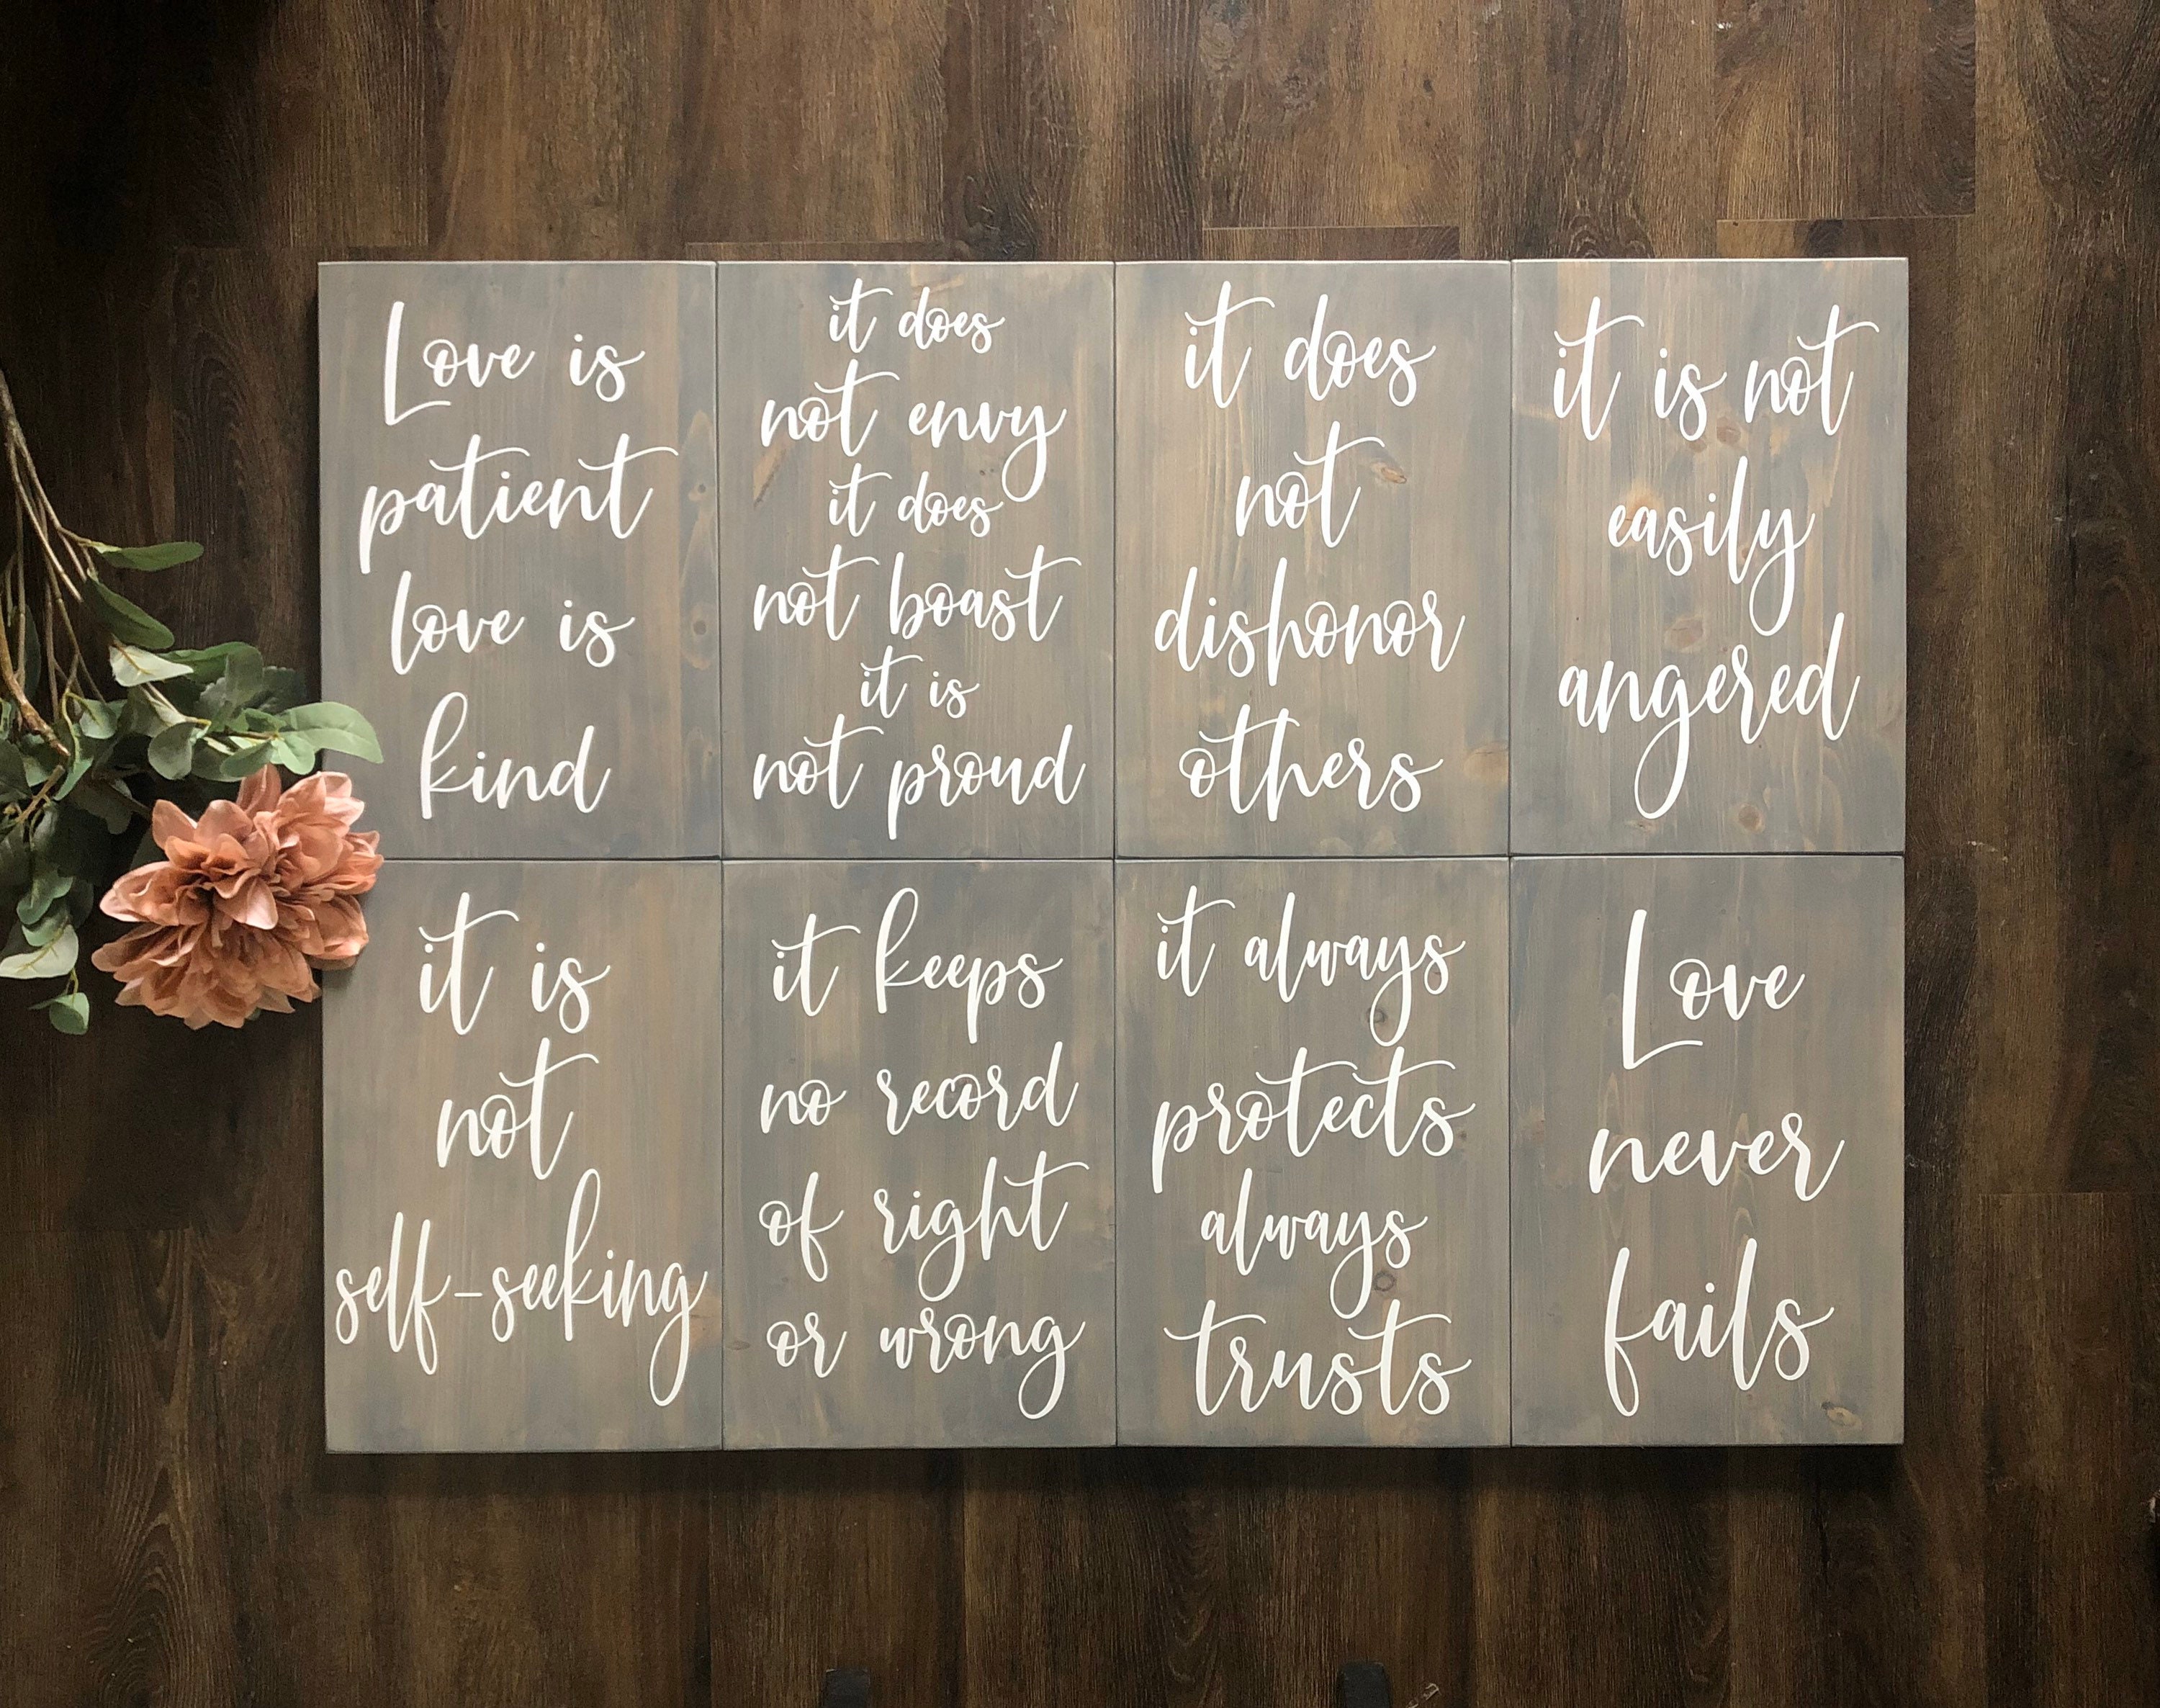 Love is
patient
love is
kind
it does
not envy
it does
not boast
it is
not proud
it does
not
dishonor
others
it is not
easily
angered
it is
not
self-seeking
it keeps
no record
of right
or wrong
it always
protects
always
trusts
Love
never
fails